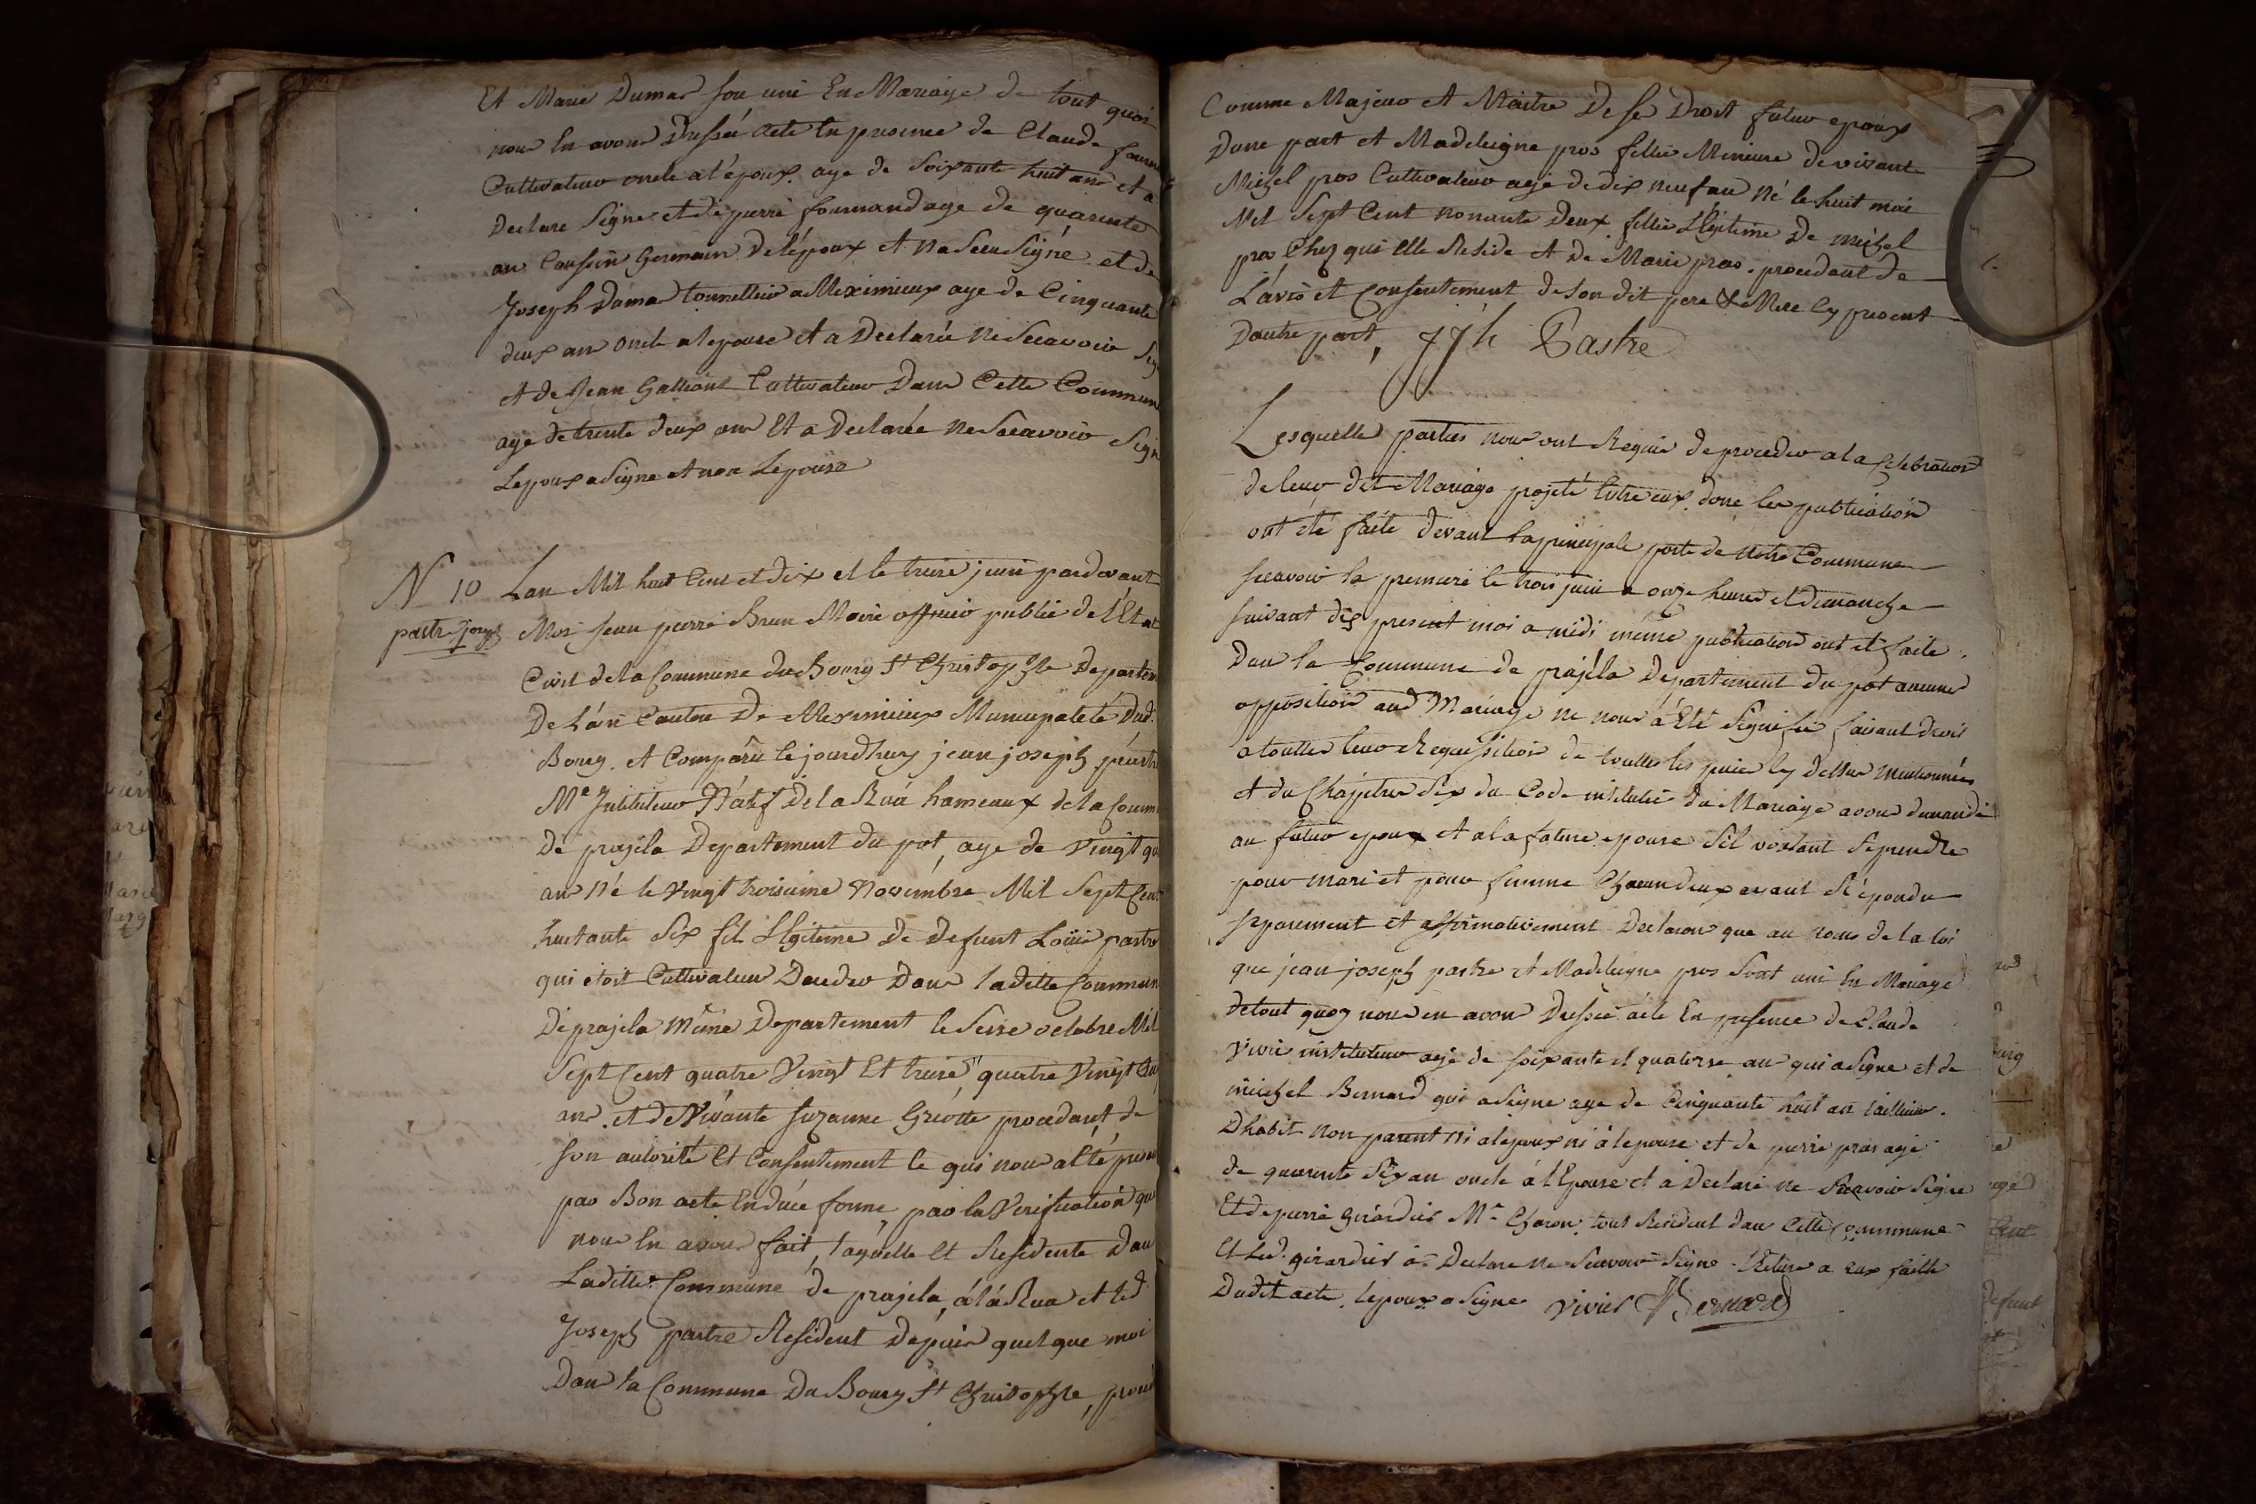 Et Marie Dumas son uni En Mariage de tout quoi
nous En avons Dressée acte En presence de Claude
Cultivateur oncle a l'epoux age de soixante huit ans et a
Declare Signe et de pierre fournand age de quarente
ans Cousin Germain de lépoux et Na Sceu Signé et de
Joseph Dama tonnellier a Meximieux age de Cinquante
deux ans oncle a lepouse et a Declarée Ne Scavoir
et de Jean Galliant Cultivateur Dans Cette Commun
age de trente deux ans Et a Declarée Ne Scavoir Sign
Lepoux a Signe et non Lepouse
N 10
pastre joseph
Lan Mil huit Cent et Dix et le treize juin pardevant
Moi Jean pierre Brun Maire officier public de l'Etat
Civil de la Commune du Bourg St Christophle Departem
De L'ain Canton De Meximieux Municipalité Dud.
Bourg. et Comparu le jourdhuy jean joseph pastre
Me Instituteur Natif De la Rua hameaux de la Comm
de prajela Departement du pot, age de Vingt qu
ans Né le Vingt troisieme Novembre Mil Sept Cent
huitante Six fil Lgitime De defunt Loüis pastre
qui étoit Cultivateur Decedé Dans laditte Commun
De prajela même Departement le Seize octobre Mil
Sept Cent quatre Vingt Et treize, quatre Vingt
ans. et de Vivante Suzanne Griotte procedant de
son autorité Et Consentement le qui nous a été
par Bon acte En Due forme, par la Verification que
nous En avons fait, laquelle Et Residente Dans
Laditte Commune de prajela, a la Rua et led
Joseph pastre Resident Depuis quelque moi
Dans la Commune Du Bourg St Christophle,
Comme Majeur et Maitre De se Droit futur epoux
Dune part et Madeleigne pros fillie Mineure de vivant
Michel pros Cultivateur agé de dix neuf an Né le huit mai
Mil Sept Cent Nonante Deux fillie Lgitime De Michel
pros Chez qui elle Reside et De Marie pras. procedant de
L'avis et Consentement de Son dit pere & Mere Cy present
Dautre part, JJh Pastre
Lesquelle parties nous ont Requis de proceder a la Celebration
de leur dit Mariage projeté Entre eux, dont les publication
ont été faite devant la principale porte de notre Commune
scavoir la premiere le trois juin a onze heures et Dimanche
suivant dix present moi a midi même publication ont et faite
Dans la Commune de prajéla Departement du pot aucune
opposition aud Mariage ne nous a Eté Signifié faisant Droit
a toutte leur Requisition de touttes les piece Cy dessus Mentionnées
et du Chapitre Six du Code intitulé du Mariage avons demandé
au futur epoux et a la future epouse Sil voulant se prendre
pour mari et pour femme Chacun deux avant Répondu
separement et affirmativement Declaron que au nom de la loi
que jean joseph pastre et Madeleigne pros Sont uni En Mariage
De tout quoy nous en avon Dressé acte En presence de Claude
Vivier instituteur agé de soixante et quatorze an qui a Signe et de
michel Bernard qui a Signe age de Cinquante huit an tailleur
Dhabit Non parent Ni a lepoux ni a lepouse et de pierre pras agé
de quarente Six an oncle á lEpouse et a Declaré ne Scavoir Signe
Et de pierre Girardier Me Charon tous Resident dans Cette Commune
Et Led. girardier a Declare ne Scavoir Signe Relire a Eux faitte
Dudit acte. lepoux a Signe Vivier Bernard